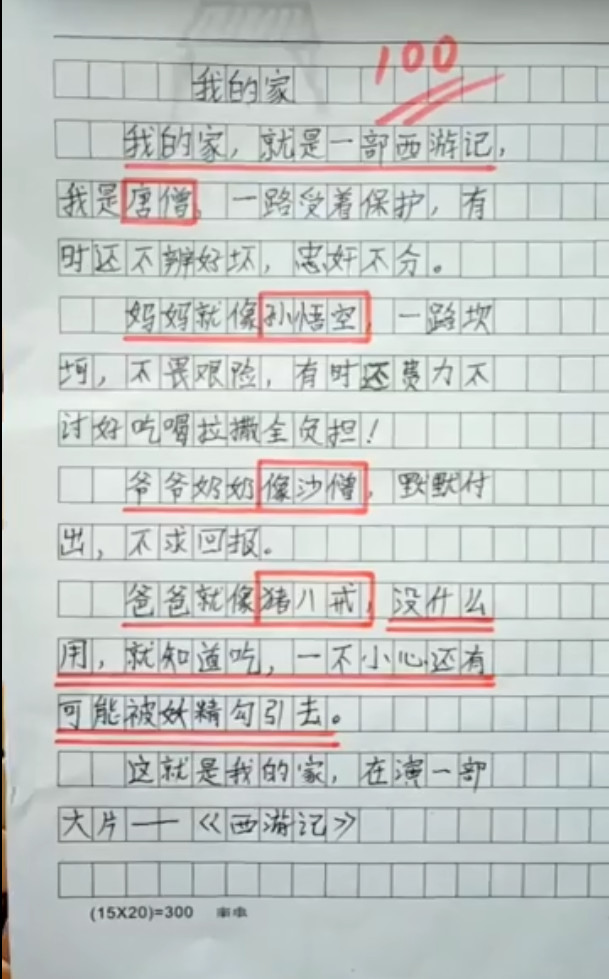 100
我的家
我的家，就是一部西游记，
我是唐僧，一路受着保护，有
时还不辨好坏，忠奸不分。
妈妈就像孙悟空，一路坎
坷，不畏艰险，有时还费力不
讨好吃喝拉撒全负担！
爷爷奶奶像沙僧，默默付
出，不求回报。
爸爸就像猪八戒，没什么
用，就知道吃，一不小心还有
可能被妖精勾引去。
这就是我的家，在演一部
大片——《西游记》
(15X20)=300